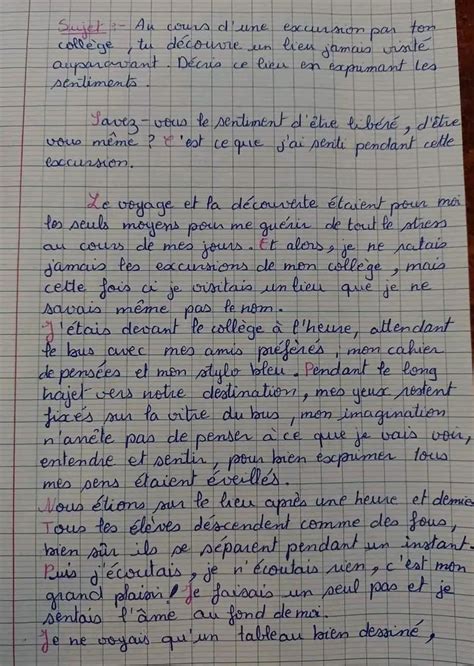 Sujet :- Au cours d'une excursion par ton
collège, tu découvre un lieu jamais visité
auparavant. Décris ce lieu en expumant tes
sentiments.
Savez-vous le sentiment d'être libéré, d'être
vous même ? C'est ce que j'ai senti pendant cette
excursion.
Le voyage et la découverte étaient pour moi
les seuls moyens pour me guérir de tout le stress
au cours de mes jours. Et alors, je ne ratais
jamais les excursions de mon collège, mais
cette fois ci je visitais un lieu que je ne
savais même pas le nom.
J'étais devant le collège à l'heure, attendant
le bus avec mes amis préférés, mon cahier
de pensées et mon stylo bleu. Pendant le long
trajet vers notre destination, mes yeux restent
fixés sur la vitre du bus, mon imagination
n'arrête pas de penser à ce que je vais voir,
entendre et sentir, pour bien exprimer tous
mes sens étaient éveillés.
Nous étions sur le lieu après une heure et demie
Tous les élèves déscendent comme des fous,
bien sûr ils se séparent pendant un instant.
Puis j'écoutais, je n'écoutais rien, c'est mon
grand plaisir! Je faisais un seul pas et je
sentais l'âme au fond de moi.
Je ne voyais qu'un tableau bien dessiné,